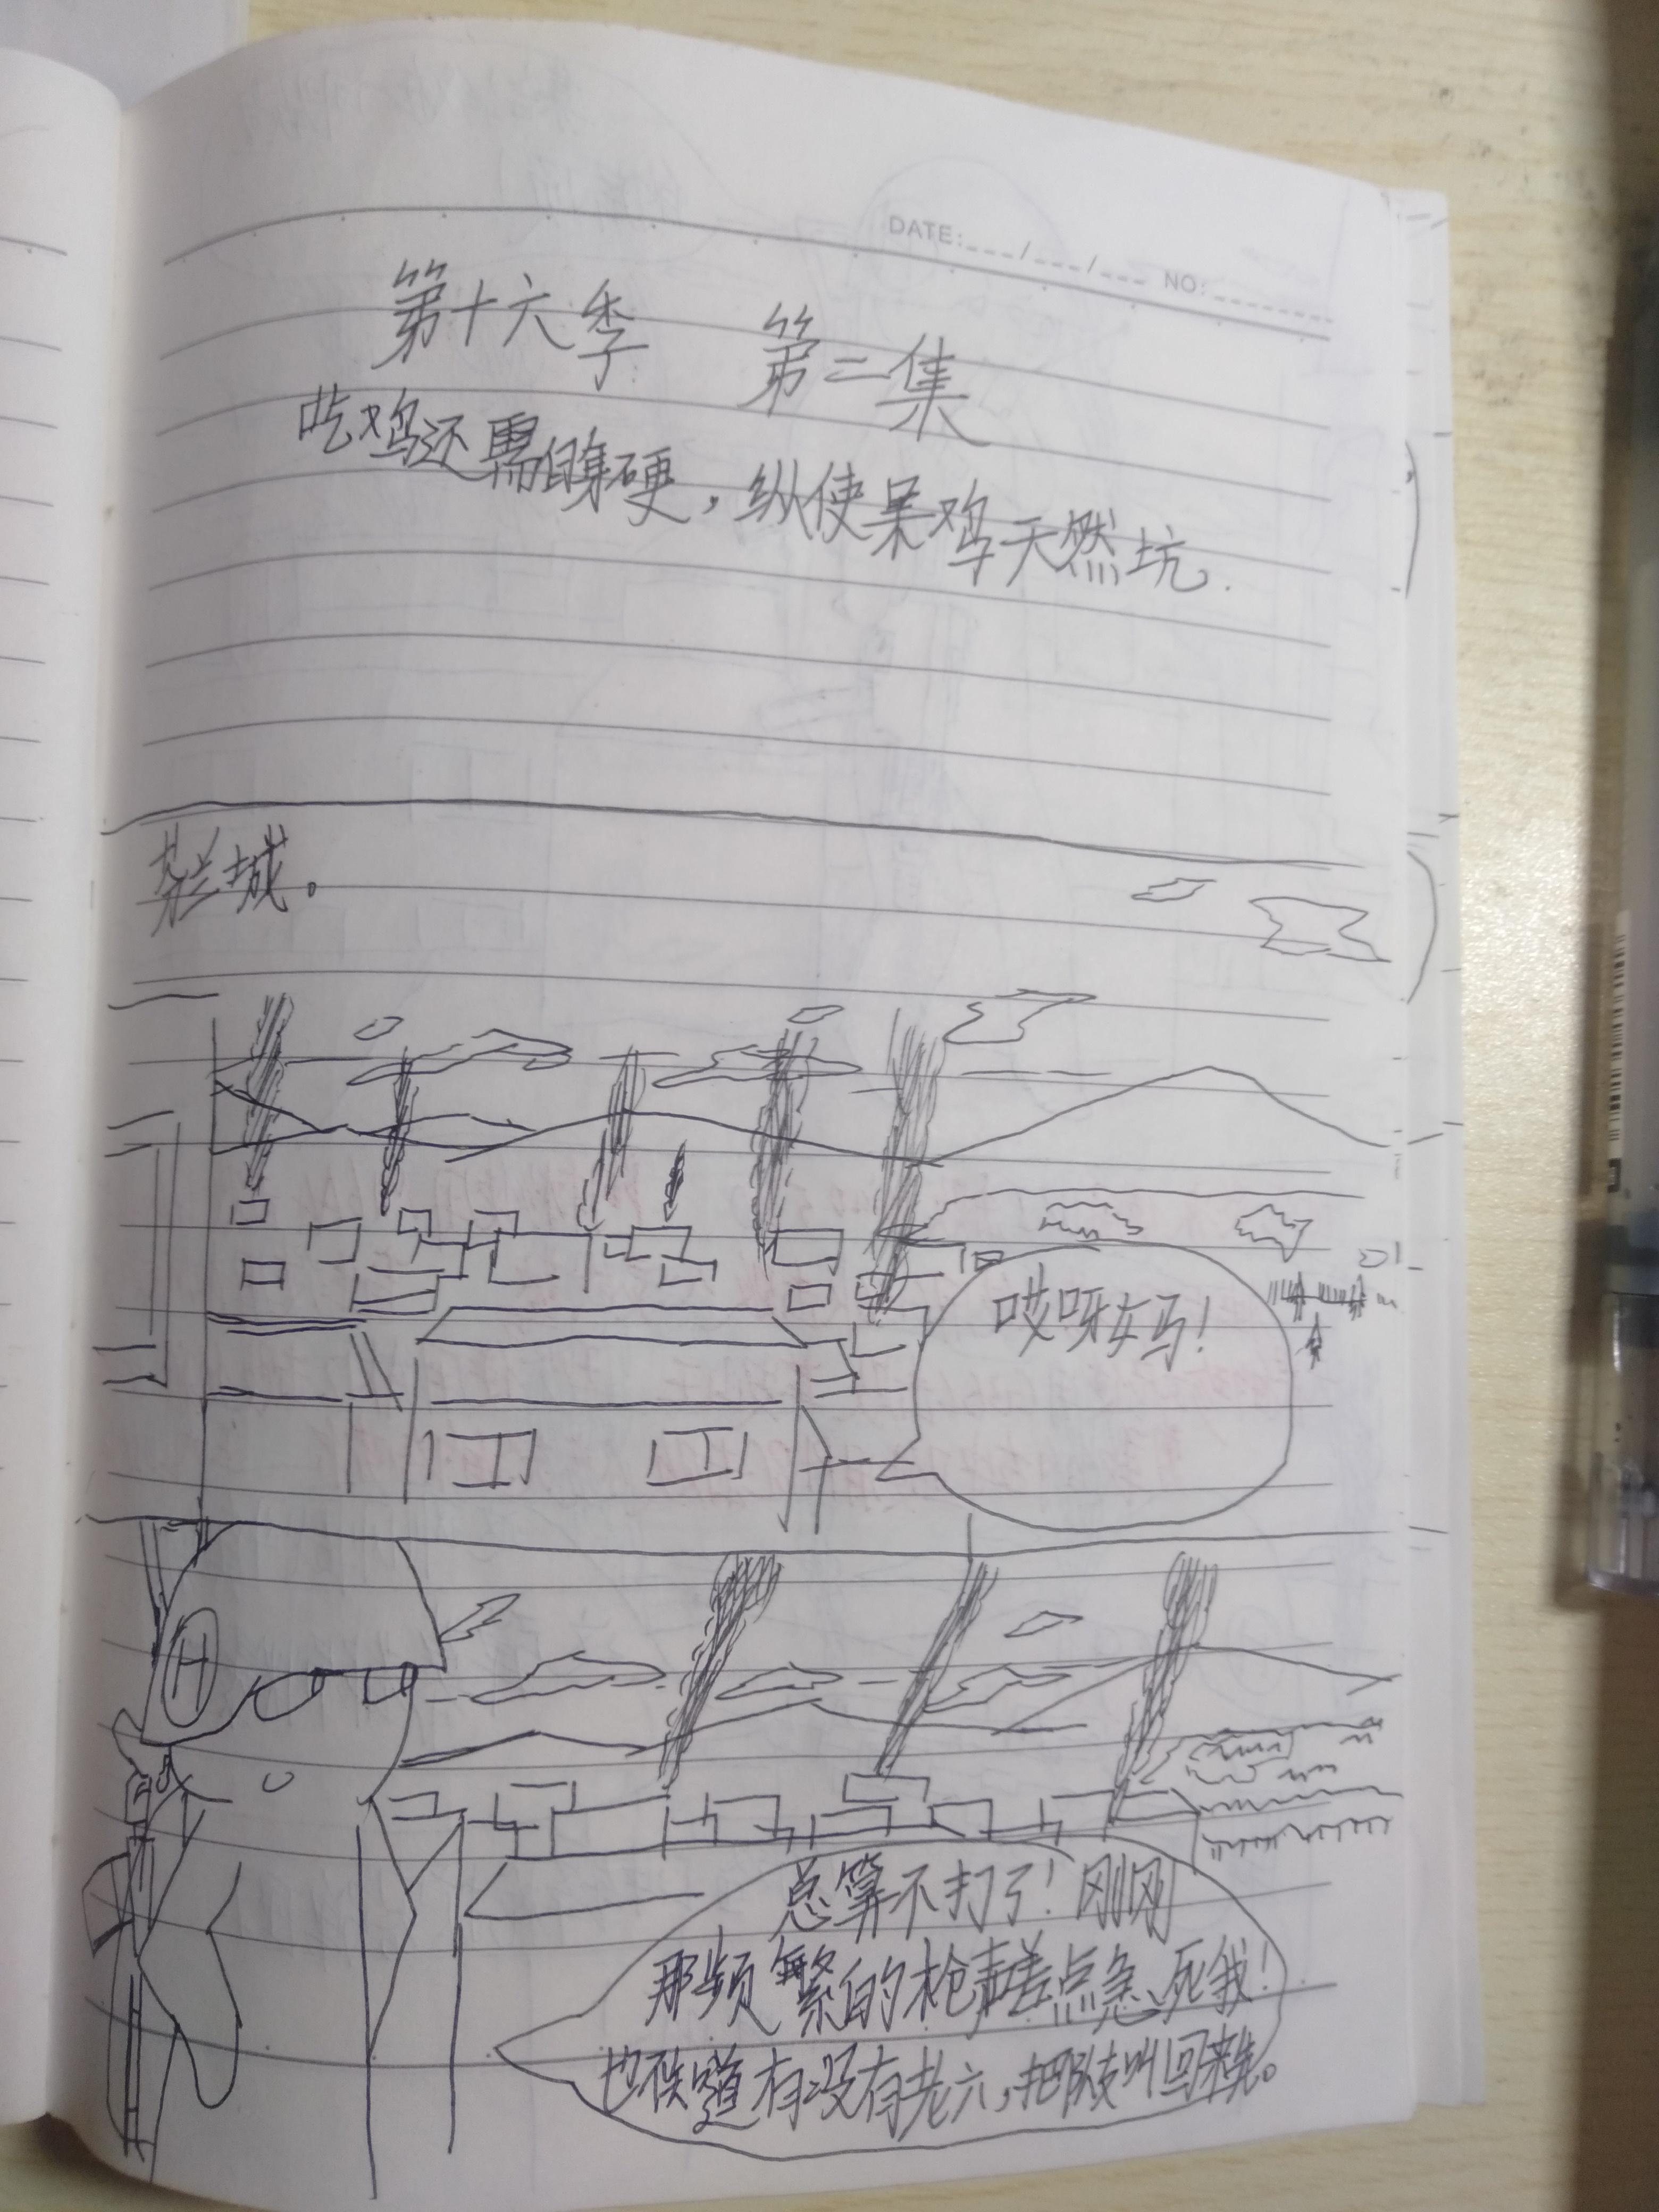 DATE:___/___/___ NO:______
第十六季 第二集
吃鸡还需自身硬，纵使呆鸡天然坑.
芬兰城。
哎呀妈!
H
总算不打了!刚刚
那频繁的枪声差点急死我!
也不知道有没有老六,把队友叫回来先。